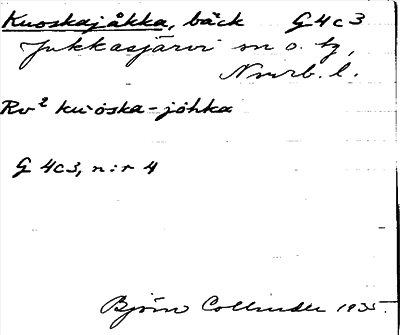 Kuoskajåkka, bäck G4c3
Jukkasjärvi sn o. tg,
Norrb. l.
Rv² kuoska-johka
G 4c3, n:r 4
Björn Collinder 1935.